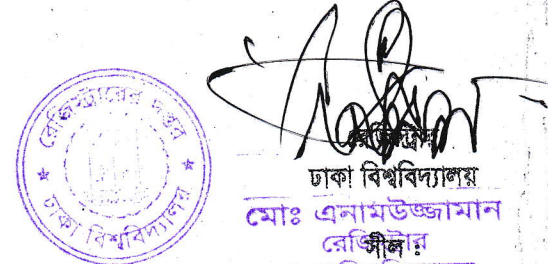 রেজিস্ট্রারের দপ্তর
ঢাকা বিশ্ববিদ্যালয়
রেজিস্ট্রার
ঢাকা বিশ্ববিদ্যালয়
মোঃ এনামউজ্জামান
রেজিস্টার
সীল :